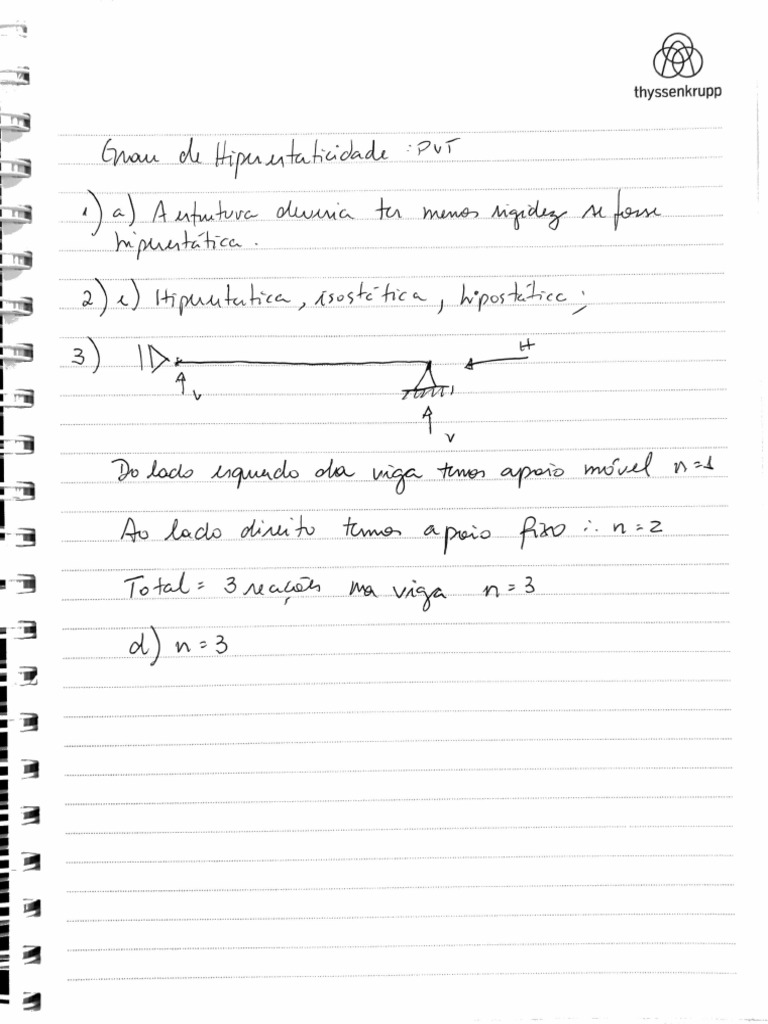 thyssenkrupp
Grau de Hiperestaticidade : PVT
1) a) A estrutura deveria ter menos rigidez se fosse
hiperestática.
2) e) Hiperestatica, isostática, hipostática;
3)
H
V
V
Do lado esquerdo da viga temos apoio móvel n=1
Ao lado direito temos apoio fixo ∴ n=2
Total = 3 reações na viga n=3
d) n=3